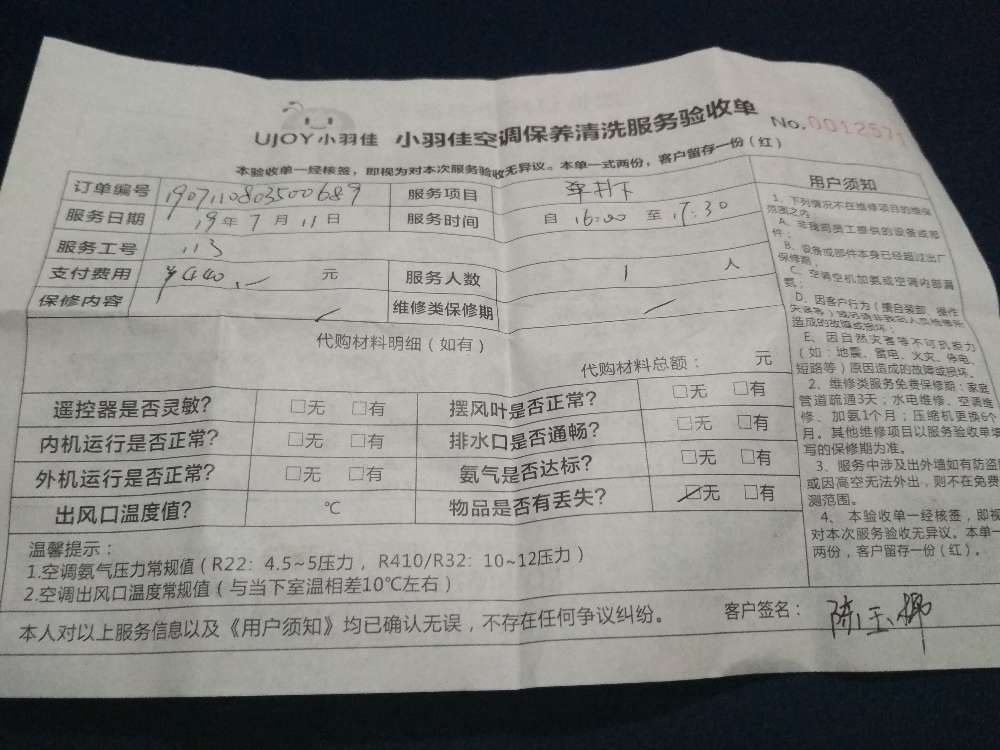 UJOY小羽佳 小羽佳空调保养清洗服务验收单 No.001257
本验收单一经核签，即视为对本次服务验收无异议。本单一式两份，客户留存一份（红）
订单编号 1907110803500689 服务项目
服务日期 19年7月11日 服务时间 自 16:00 至 17:30
服务工号 113
支付费用 ¥440.- 元 服务人数 1 人
保修内容 / 维修类保修期 /
代购材料明细（如有）
代购材料总额： 元
遥控器是否灵敏？ □无 □有 摆风叶是否正常？ □无 □有
内机运行是否正常？ □无 □有 排水口是否通畅？ □无 □有
外机运行是否正常？ □无 □有 氨气是否达标？ □无 □有
出风口温度值？ ℃ 物品是否有丢失？ ☑无 □有
温馨提示：
1.空调氨气压力常规值（R22：4.5~5压力，R410/R32：10~12压力）
2.空调出风口温度常规值（与当下室温相差10℃左右）
本人对以上服务信息以及《用户须知》均已确认无误，不存在任何争议纠纷。 客户签名：陈玉
用户须知
1、下列情况不在维修项目的维保
范围之内：
A、非我司员工提供的设备或部
件；
B、设备或部件本身已经超过出厂
保修期；
C、空调空机加氨或空调内部漏
氨；
D、因客户行为（擅自装卸、操作
造成的故障或损坏；
E、因自然灾害等不可抗拒力
（如：地震、雷电、火灾、停电、
短路等）原因造成的故障或损坏。
2、维修类服务免费保修期：家庭
管道疏通3天；水电维修、空调维
修、加氨1个月；压缩机更换6个
月。其他维修项目以服务验收单填
写的保修期为准。
3、服务中涉及出外墙如有防盗
或因高空无法外出，则不在免费
测范围。
4、本验收单一经核签，即视
对本次服务验收无异议。本单一
两份，客户留存一份（红）。